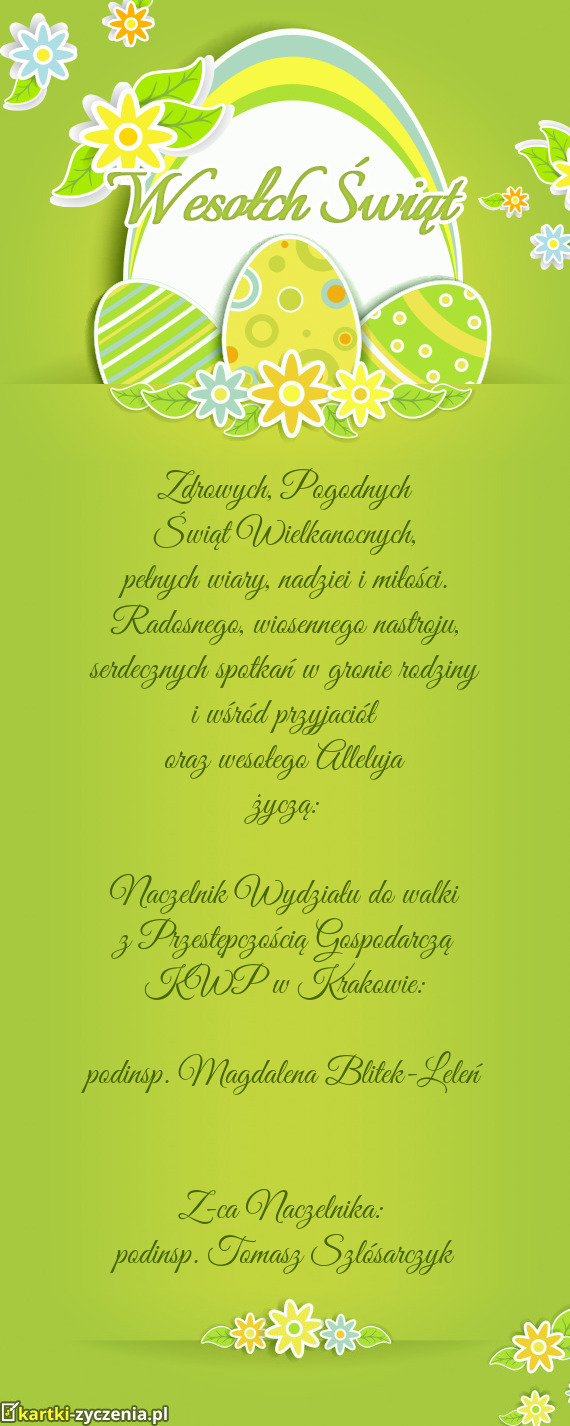 Wesołch Świąt
Zdrowych, Pogodnych
Świąt Wielkanocnych,
pełnych wiary, nadziei i miłości.
Radosnego, wiosennego nastroju,
serdecznych spotkań w gronie rodziny
i wśród przyjaciół
oraz wesołego Alleluja
życzą:
Naczelnik Wydziału do walki
z Przestępczością Gospodarczą
KWP w Krakowie:
podinsp. Magdalena Blitek-Leleń
Z-ca Naczelnika:
podinsp. Tomasz Szlósarczyk
kartki-zyczenia.pl